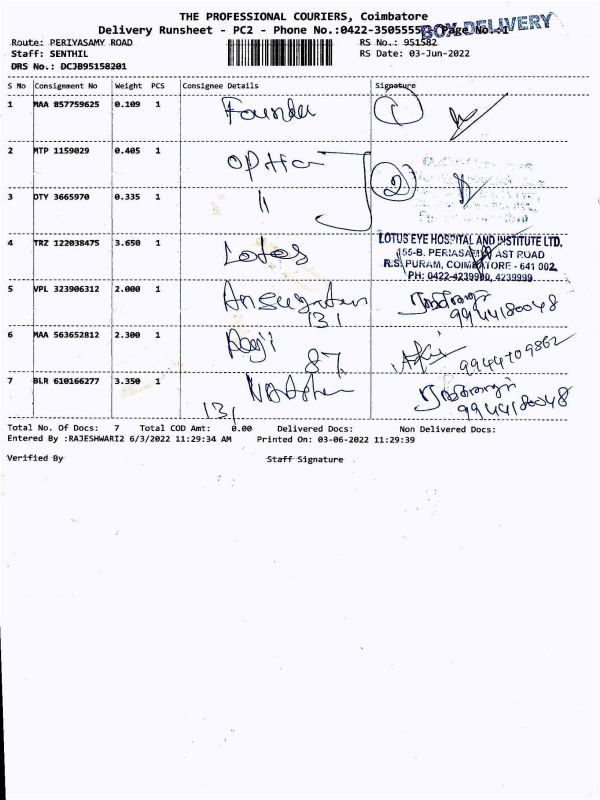 THE PROFESSIONAL COURIERS, Coimbatore
Delivery Runsheet - PC2 - Phone No.:0422-3505555 Page No.:1
BOX DELIVERY
Route: PERIYASAMY ROAD RS No.: 951582
Staff: SENTHIL RS Date: 03-Jun-2022
DRS No.: DCJB95158201
S No Consignment No Weight PCS Consignee Details Signature
1 MAA 857759625 0.109 1 Founder 1
2 MTP 1159029 0.405 1 2
3 DTY 3665970 0.335 1 "
4 TRZ 122038475 3.650 1 Lotos
LOTUS EYE HOSPITAL AND INSTITUTE LTD.
155-B, PERIASAMY EAST ROAD
R.S. PURAM, COIMBATORE - 641 002.
PH: 0422-4239900, 4239999
5 VPL 323906312 2.000 1
131 9944180048
6 MAA 563652812 2.300 1
87. 9944709862
7 BLR 610166277 3.350 1
131 9944180048
Total No. Of Docs: 7 Total COD Amt: 0.00 Delivered Docs: Non Delivered Docs:
Entered By :RAJESHWARI2 6/3/2022 11:29:34 AM Printed On: 03-06-2022 11:29:39
Verified By Staff Signature